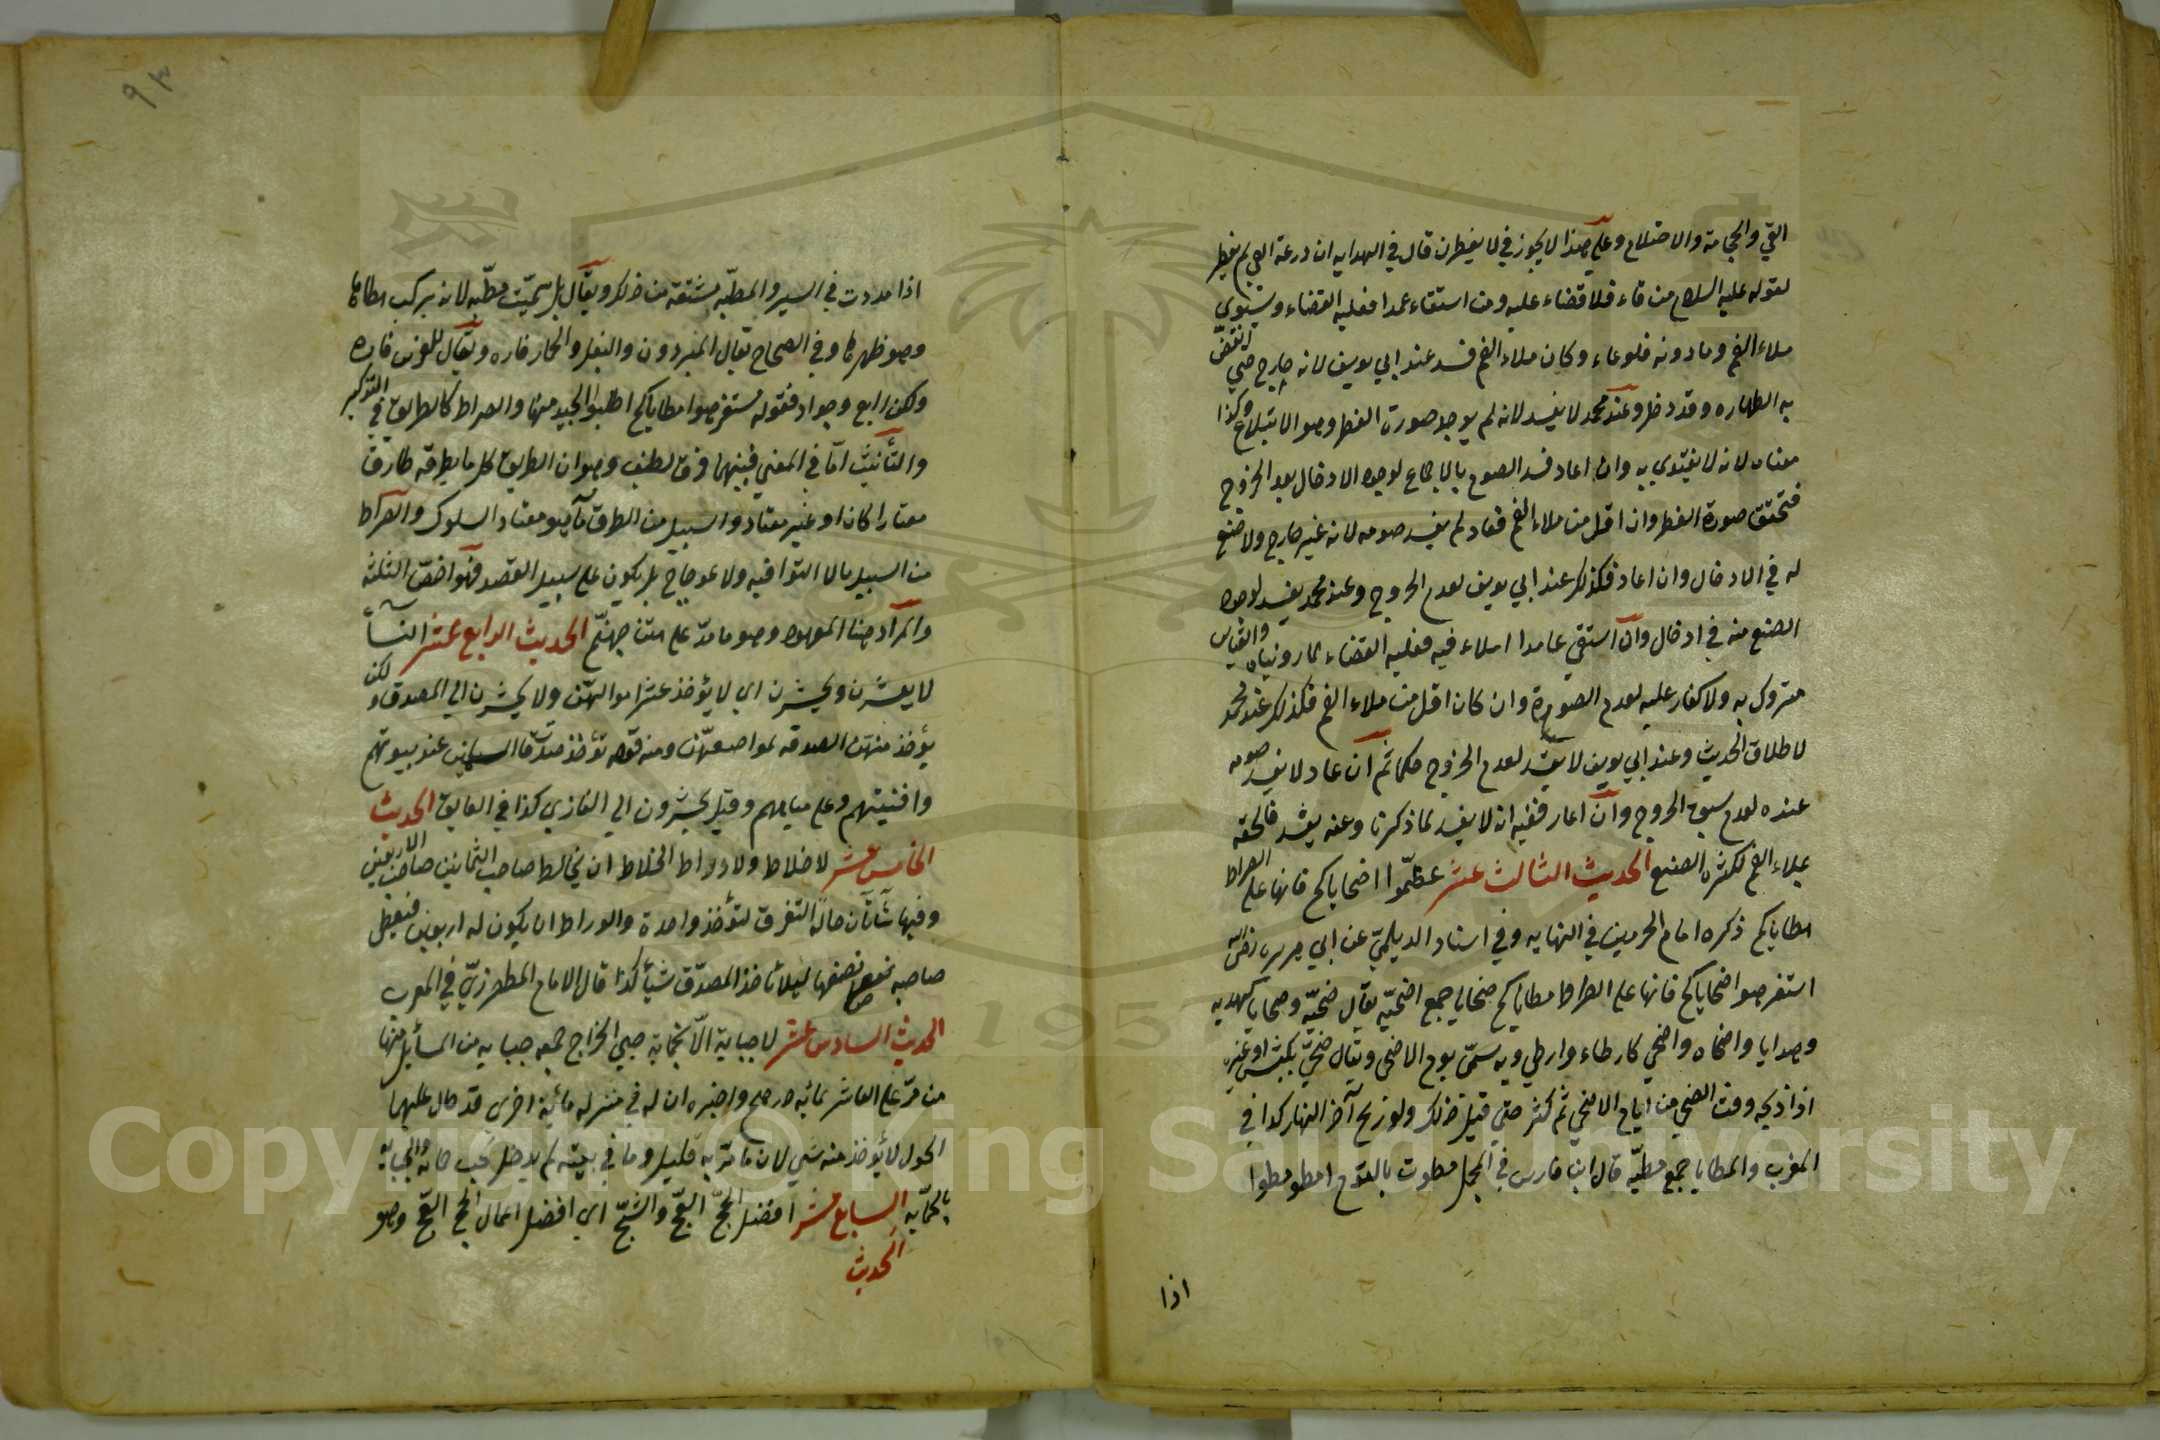 القئ والحجامة والاحتلام وعلى هذا لا يجوز في لا يفطرن قال في الهدايه ان ذرعه القئ لم يفطر
لقوله عليه السلام من قاء فلا قضاء عليه ومن استقاء عمدا فعليه القضاء ويستوي
ملاء الفم وما دونه فلو عاء وكان ملاء الفم فسد عند ابي يوسف لانه خارج حتى انتقض
به الطهاره وقد دخل وعند محمد لا يفسد لانه لم يوجد صورت الفطر وهو الابتلاع وكذا
معناه لانه لا يتغذي به وان اعاد فسد الصوم بالاجماع لوجود الادخال بعد الخروج
فتحقق صورة الفطر وان اقل من ملاء الفم فعاد لم يفسد صومه لانه غير خارج ولا صنع
له في الادخال وان اعاد فكذلك عند ابي يوسف لعدم الخروج وعند محمد يفسد لوجود
الصنع منه في ادخال وان استقئ عامدا املاء فيه فعليه القضاء لما روينا والقياس
متروك به ولا كفار عليه لعدم الصورة وان كان اقل من ملاء الفم فكذلك عند محمد
لاطلاق الحديث وعند ابي يوسف لا يفسد لعدم الخروج حكما ثم ان عاد لا يفسد صومه
عنده لعدم سبق الخروج وان اعاد ففيه ان لا يفسد لما ذكرنا وعنه يفسد فالحقه
بملاء الفم لكثره الصنع الحديث الثالث عشر عظّموا اضحاياكم فانها على الصراط
مطاياكم ذكره امام الحرمين في النهايه وفي اسناد الديلمي عن ابي هريره رضى الله
استفرهوا اضحاياكم فانها على الصراط مطاياكم ضحاي جمع اضحيّه يقال ضحيّه وضحايا كهديه
وهدايا واضحاه واضحى كارطاء وارطي وبه سمّى يوم الاضحى ويقال ضحّى بكبش او غيره
اذا ذبحه وقت الضحى من ايام الاضحى ثم كثر حتى قيل ذلك ولو ذبح آخر النهار كذا في
المغرب والمطايا جمع مطيّه قال ابن فارس في المجمل مطوت بالقوم امطو مطوا
اذا
٩٣
اذا مددت في السير والمطيّه مشتقة من ذلك ويقال بل سمّيت مطيّه لانه يركب مطاها
وهو ظهرها وفي الصحاح يقال البرذون والبغل والحمار فاره ويقال للفرس فاره
ولكن رايع وجواد فقوله استفرهوا مطاياكم اطلبوا الجيد منها والصراط كالطريق في التذكير
والتأنيث امّا في المعنى فبينهما فرق لطيف وهو ان الطريق كل ما يطرقه طارق
معتادا كان او غير معتاد والسبيل من الطرق ما هو معتاد السلوك والصراط
من السبيل ما لا التواء فيه ولا اعوجاج بل يكون على سبيل القصد فهو اخصّ الثلثه
والمراد هنا المعهود وهو ما مدّ على متن جهنّم الحديث الرابع عشر النسآء
لا يعشّرن ويحشرن اي لا يؤخذ عشر اموالهنّ ولا يحشرن الي المصدق ولكن
يؤخذ منهن الصدقه لمواضعهنّ ومنه قوله تؤخذ صدقات المسلمين عند بيوتهم
وافنيتهم وعلى مياههم وقيل يحشرون الي الغازي كذا في الفايق الحديث
الخامس عشر لا خلاط ولا وراط الخلاط ان يخالط صاحب الثمانين صاحب الاربعين
وفيها شاتان حالة التفرق لتؤخذ واحدة والوراط ان يكون له اربعون فيعطى
صاحبه نصفها لئلا ياخذ المصدّق شيأ كذا قال الامام المطرزيّ في المغرب
الحديث السادس عشر لا جباية الّا بحماية جبي الخراج جمعه جبايه من المسائل منها
من مرّ على العاشر بمائه درهم واخبره ان له في منزله مائة اخرى قد حال عليها
الحول لا يؤخذ منه شي لان ما مرّ به قليل وما في بيته لم يدخل تحت حمايته والجبايه
بالحمّايه السابع عشر افضل الحجّ العجّ والثجّ اى افضل اعمال الحج العجّ وهو
الحديث
Copyright © King Saud University
1957